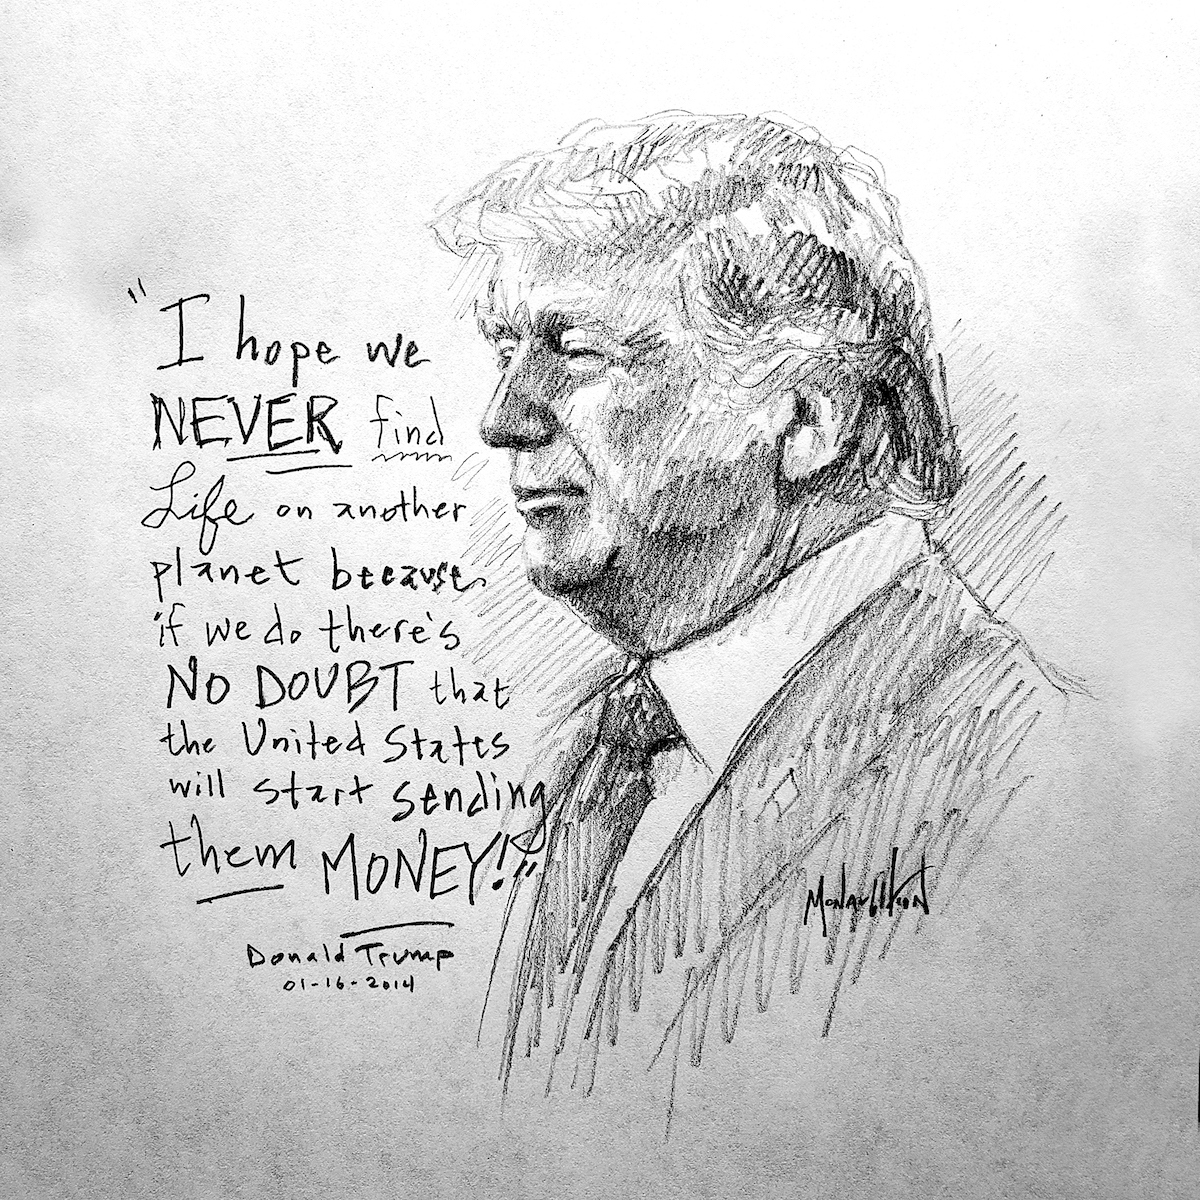 "I hope we
NEVER find
Life on another
planet because
if we do there's
NO DOUBT that
the United States
will start sending
them MONEY!"
Donald Trump
01-16-2014